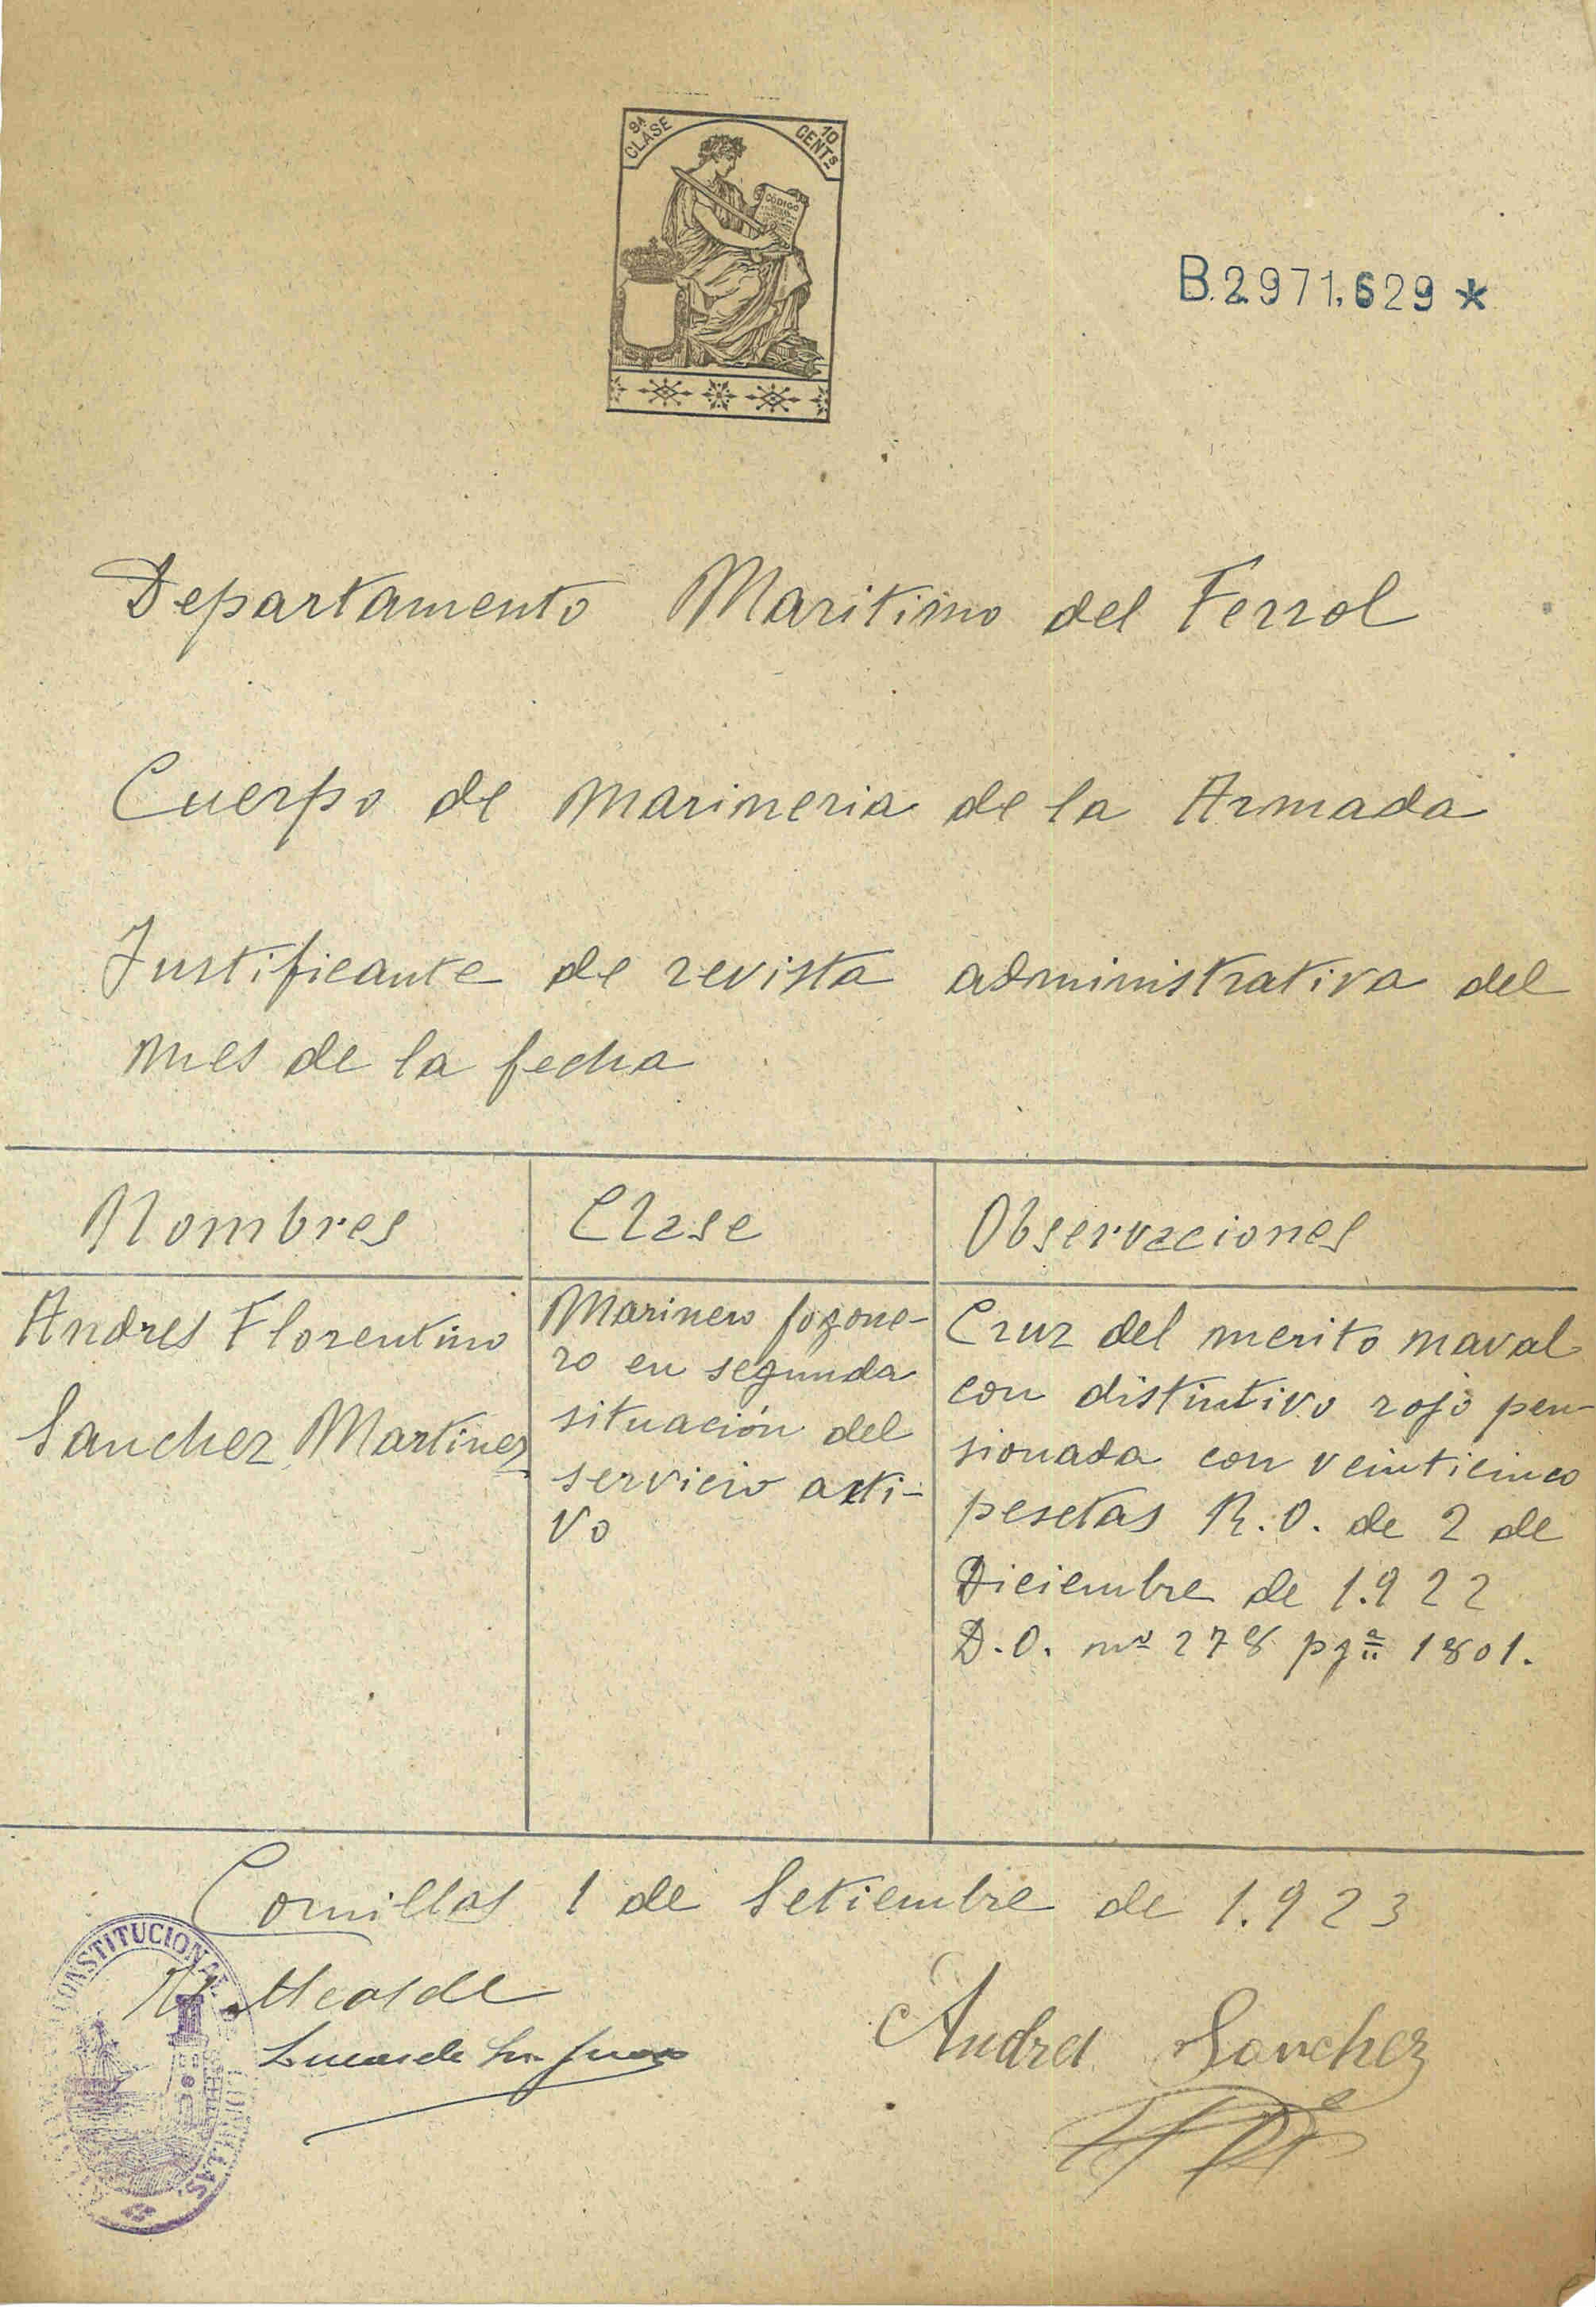 9ª CLASE
10 CENTS
CÓDIGO
B.2.971.629 *
Departamento Maritimo del Ferrol
Cuerpo de marineria de la Armada
Justificante de revista administrativa del
mes de la fecha
Nombres
Clase
Observaciones
Andres Florentino
Sanchez Martinez
Marinero fogone-
ro en segunda
situación del
servicio acti-
vo
Cruz del merito naval
con distintivo rojo pen-
sionada con veinticinco
pesetas R.O. de 2 de
Diciembre de 1.922
D.O. nº 278 pgª 1801.
Comillas 1 de Setiembre de 1.923
Alcalde
Andres Sanchez
CONSTITUCIONAL
COMILLAS